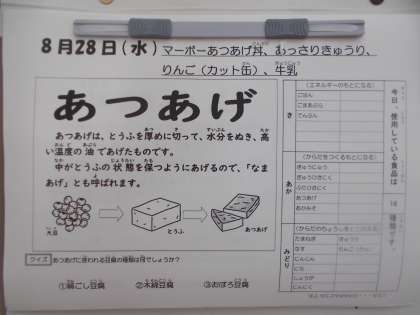 8月28日(水) マーボーあつあげ丼、むっさりきゅうり、
りんご(カット缶)、牛乳
あつあげ
あつあげは、とうふを厚めに切って、水分をぬき、高
い温度の油であげたものです。
中がとうふの状態を保つようにあげるので、「なま
あげ」とも呼ばれます。
大豆
とうふ
あつあげ
クイズ あつあげに使われる豆腐の種類は何でしょうか?
①絹ごし豆腐 ②木綿豆腐 ③おぼろ豆腐
今日、使用している食品は
18
種類です。
き
(エネルギーのもとになる)
ごはん
ごまあぶら
でんぷん
あか
(からだをつくるもとになる)
ぎゅうにゅう
ぶたひきにく
あつあげ
みどり
たまねぎ
きゅうり
なす
りんご
にんじん
にら
しょうが
にんにく